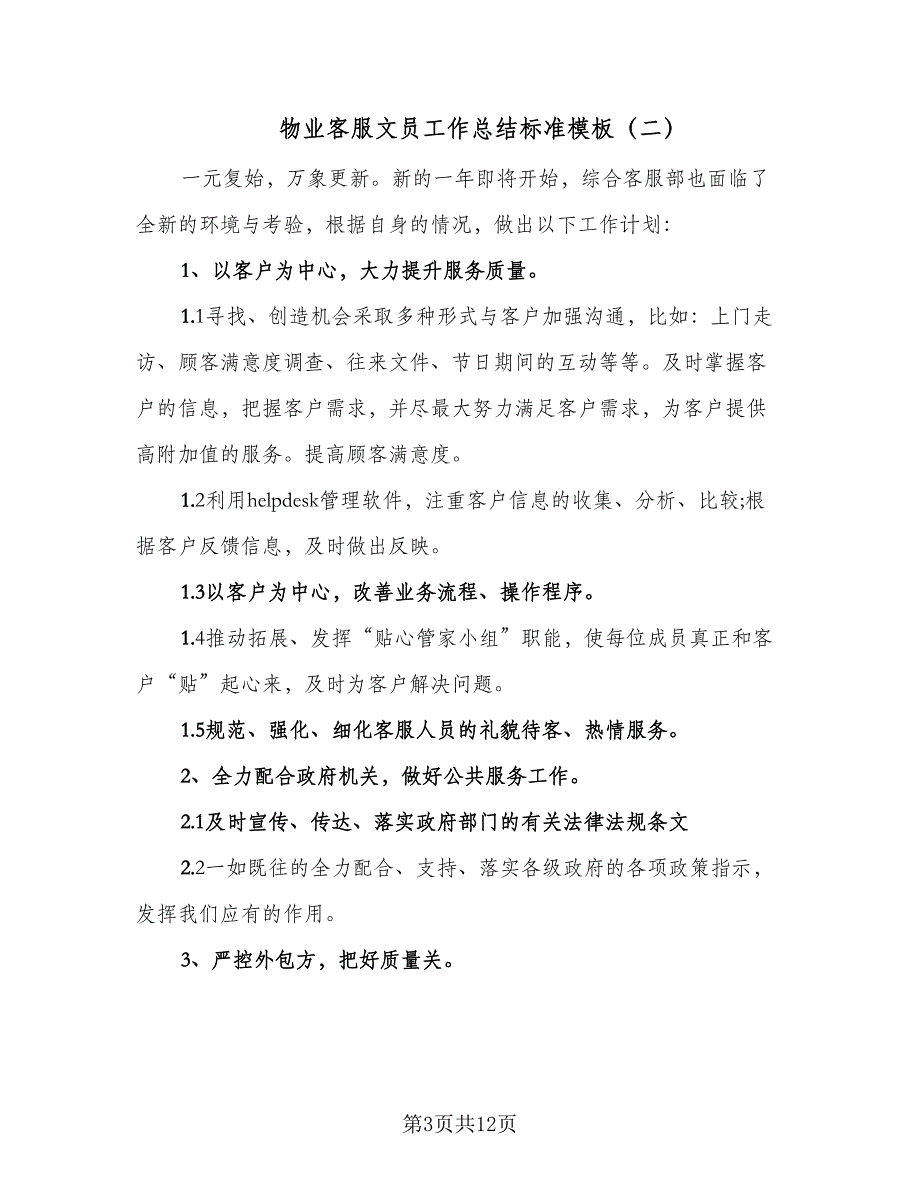 物业客服文员工作总结标准模板（二）
一元复始，万象更新。新的一年即将开始，综合客服部也面临了
全新的环境与考验，根据自身的情况，做出以下工作计划：
1、以客户为中心，大力提升服务质量。
1.1寻找、创造机会采取多种形式与客户加强沟通，比如：上门走
访、顾客满意度调查、往来文件、节日期间的互动等等。及时掌握客
户的信息，把握客户需求，并尽最大努力满足客户需求，为客户提供
高附加值的服务。提高顾客满意度。
1.2利用helpdesk管理软件，注重客户信息的收集、分析、比较;根
据客户反馈信息，及时做出反映。
1.3以客户为中心，改善业务流程、操作程序。
1.4推动拓展、发挥“贴心管家小组”职能，使每位成员真正和客
户“贴”起心来，及时为客户解决问题。
1.5规范、强化、细化客服人员的礼貌待客、热情服务。
2、全力配合政府机关，做好公共服务工作。
2.1及时宣传、传达、落实政府部门的有关法律法规条文
2.2一如既往的全力配合、支持、落实各级政府的各项政策指示，
发挥我们应有的作用。
3、严控外包方，把好质量关。
第3页共12页